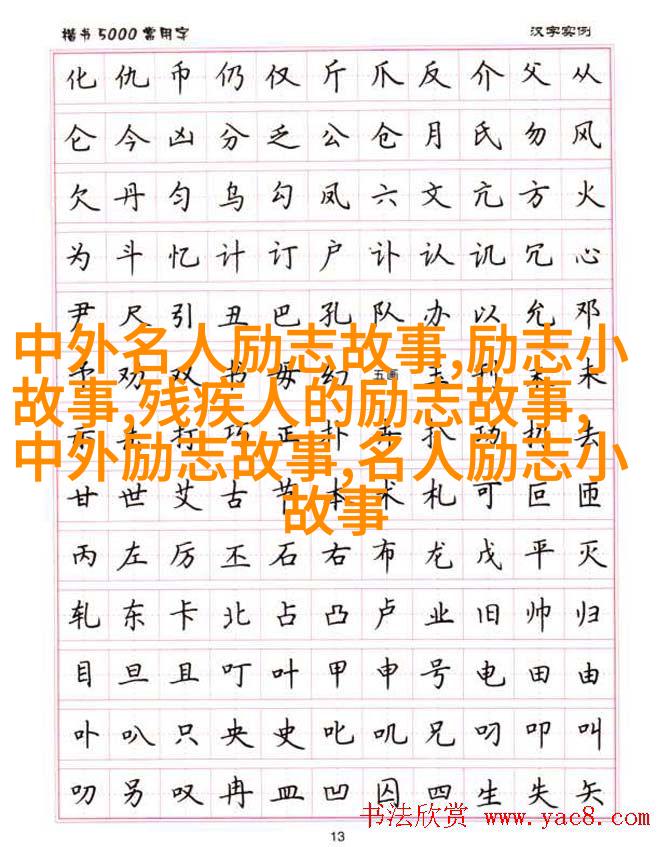 楷书5000常用字 汉字实例
化仇币仍仅斤爪反介父从
仑今凶分乏公仓月氏勿风
欠丹匀乌勾凤六文亢方火
为斗忆计订户讣认讥冗心
尹尺引丑巴孔队办以允邓
中外名人励志故事,励志小
故事,残疾人的励志故事,
中外励志故事,名人励志小
故事
甘世艾古节本术札可叵匝
丙左厉丕石右布龙戊平灭
轧东卡北占凸卢业旧帅归
目旦且叮叶甲申号电田由
卟叭只央史叱叽兄叼叩叫
叻另叹冉皿凹囚四生失矢
书法欣赏 www.yac8.com
13